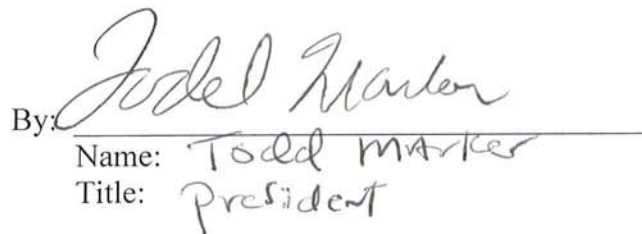 By: Todd Marker
Name: Todd Marker
Title: President